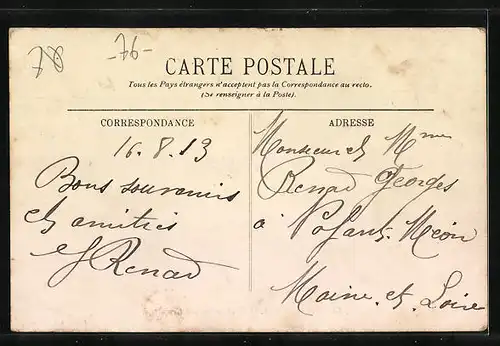 78
-76-
CARTE POSTALE
Tous les Pays étrangers n'acceptent pas la Correspondance au recto.
(Se renseigner à la Poste).
CORRESPONDANCE
ADRESSE
16.8.13
Bons souvenirs
et amitiés
Renard
Monsieur et Mme
Renard Georges
à Méon
Maine-et-Loire